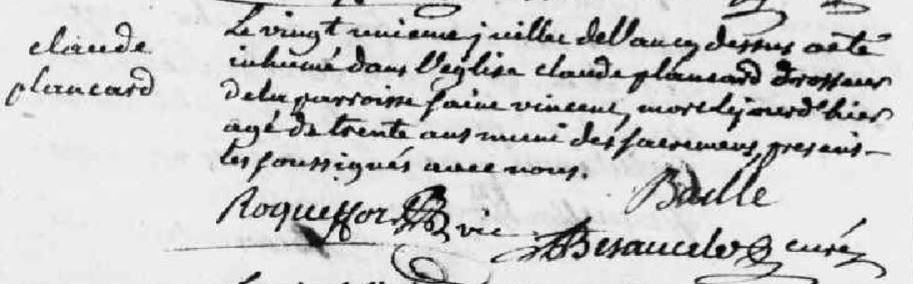 claude
plancard
Le vingt unieme juillet de l'an cy dessus a eté
inhumé dans l'eglise claude plancard drosseur
de la parroisse saint vincent, mort le jourd'hier
agé de trente ans muni des sacremens, presens
les soussignés avec nous.
Baille
Roqueffort vic
Besaucele curé